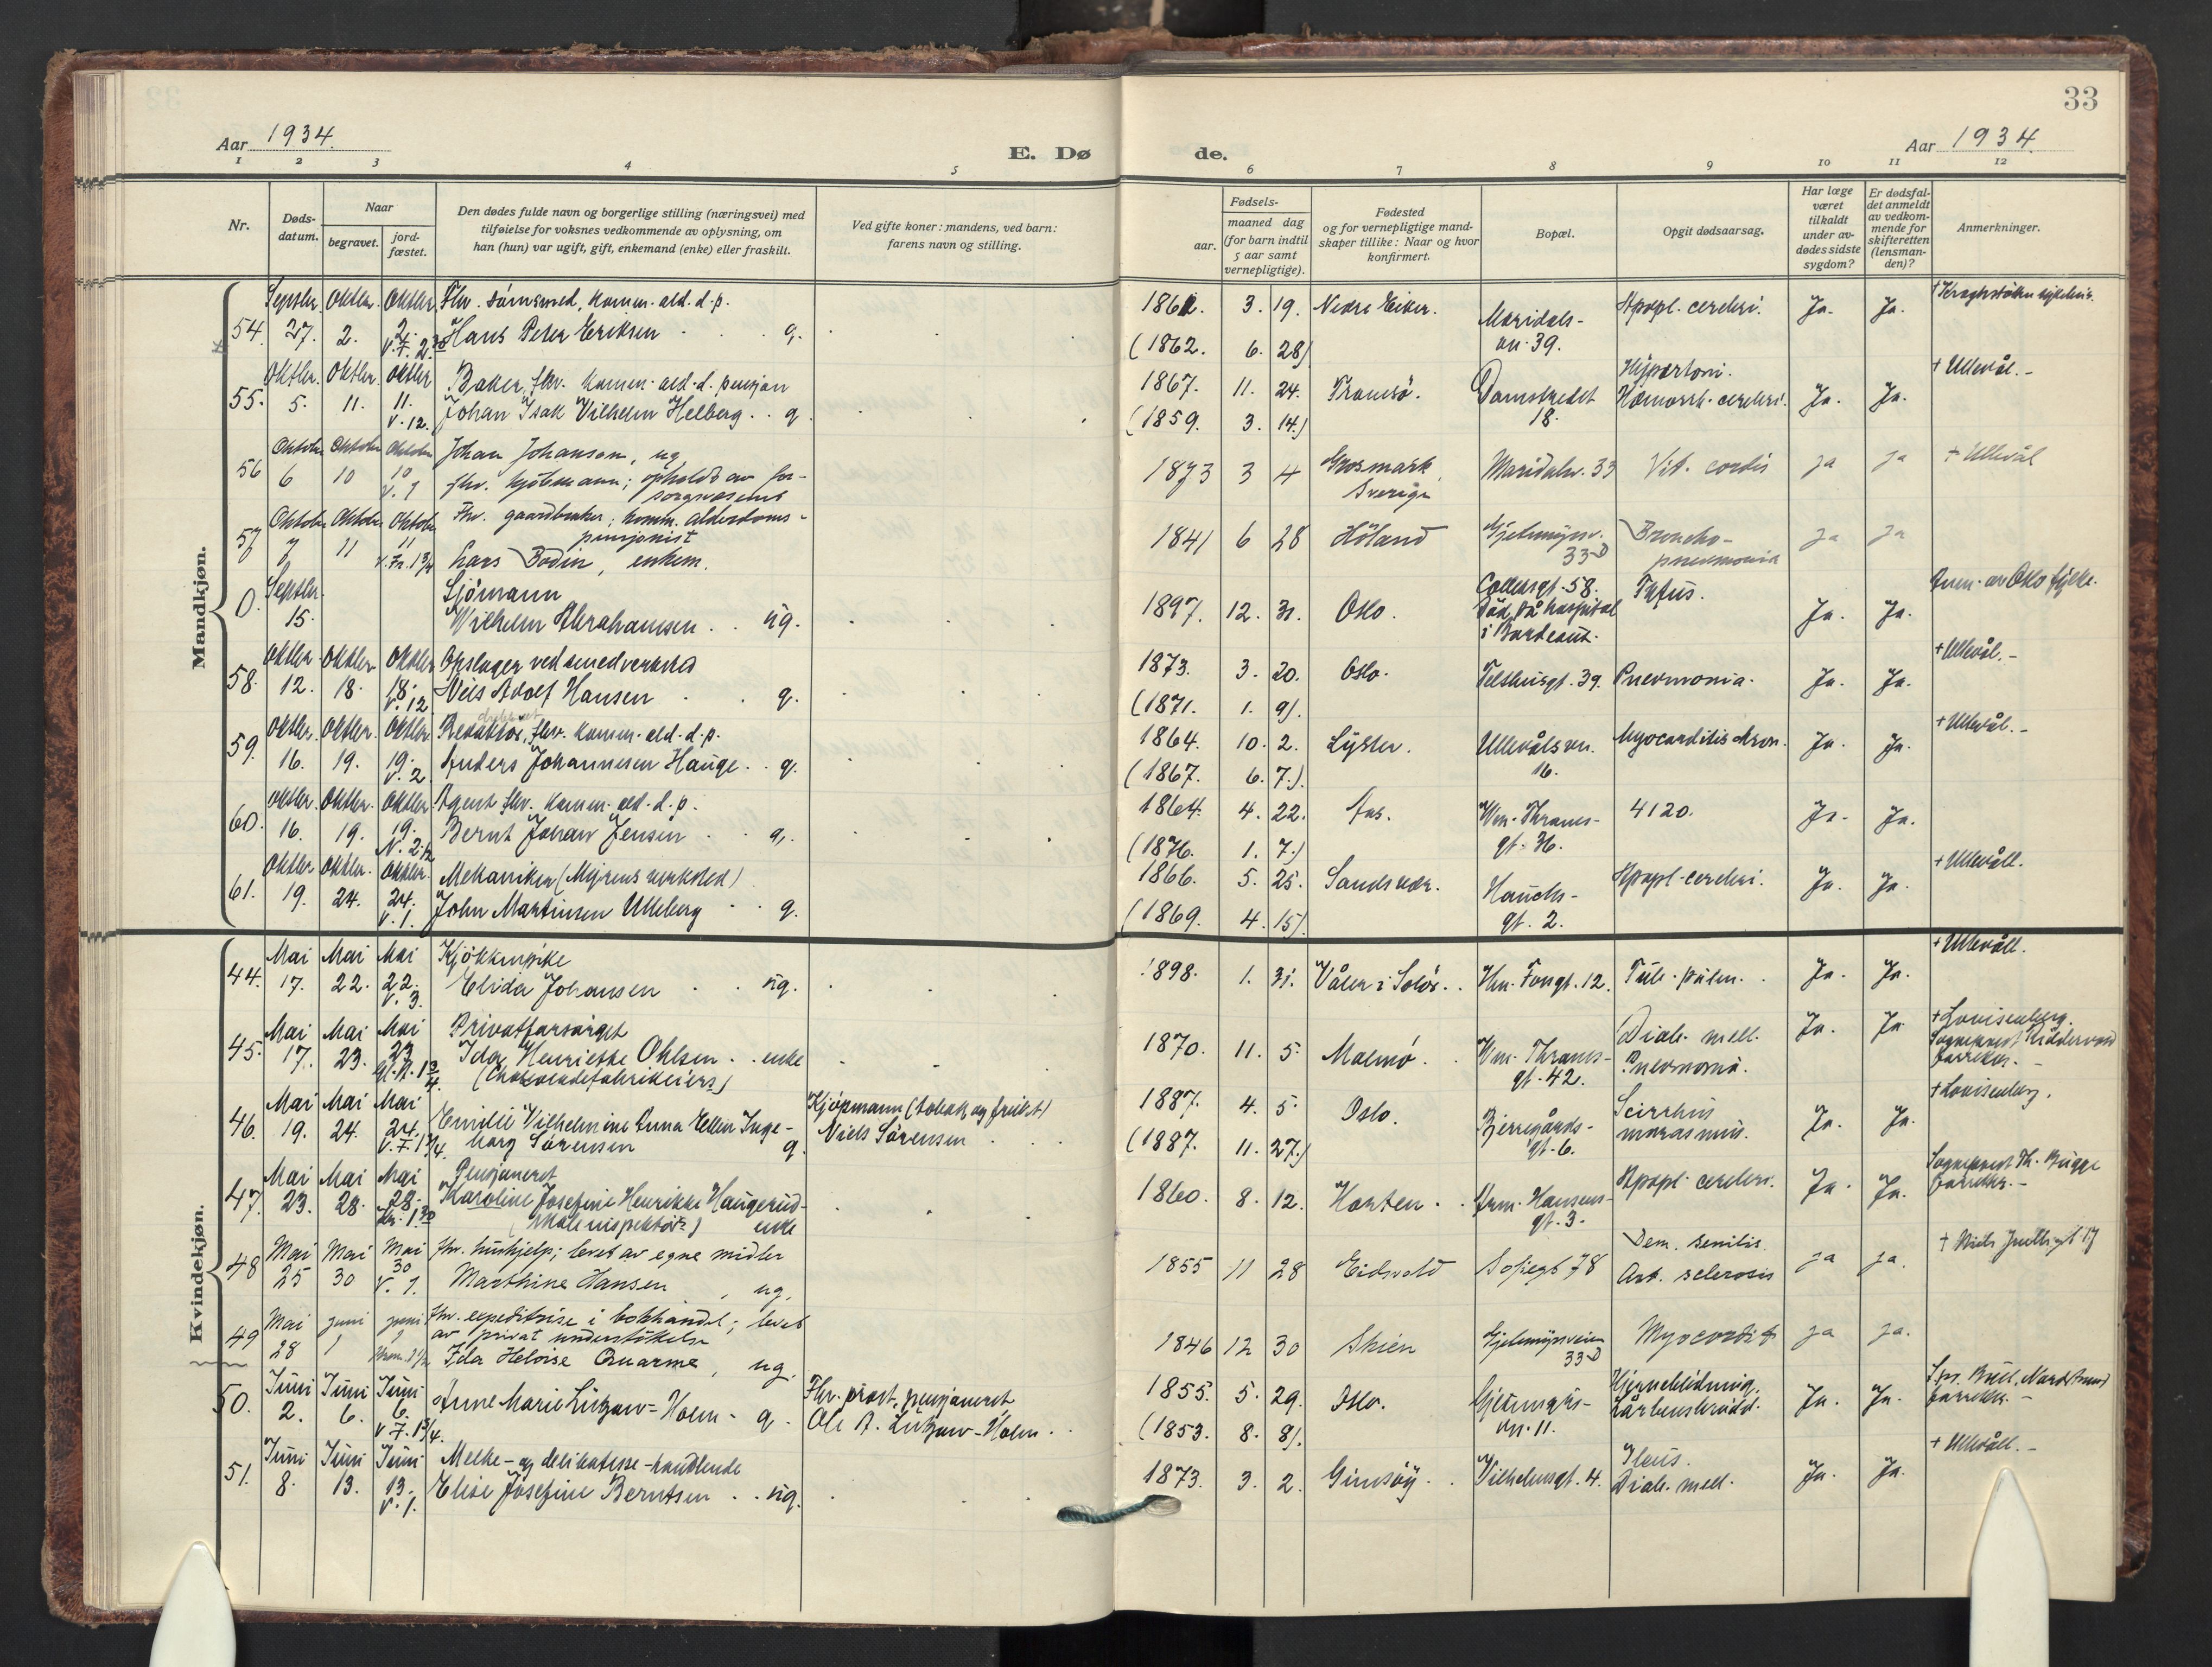 33
Aar 1934.
E. Dø
de.
Aar 1934.
1 2 3 4 5 6 7 8 9 10 11 12
Nr.
Døds-
datum.
Naar
begravet.
jord-
fæstet.
Den dødes fulde navn og borgerlige stilling (næringsvei) med
tilføielse for voksnes vedkommende av oplysning, om
han (hun) var ugift, gift, enkemand (enke) eller fraskilt.
Ved gifte koner: mandens, ved barn:
farens navn og stilling.
Fødsels-
aar.
maaned dag
(for barn indtil
5 aar samt
vernepligtige).
Fødested
og for vernepligtige mand-
skaper tillike: Naar og hvor
konfirmert.
Bopæl.
Opgit dødsaarsag.
Har læge
været
tilkaldt
under av-
dødes sidste
sygdom?
Er dødsfal-
det anmeldt
av vedkom-
mende for
skifteretten
(lensman-
den)?
Anmerkninger.
Mandkjøn.
Septbr. Oktbr. Oktbr. Fhv. komm. ald. d. p. 3. 19. Nedre Eiker. Apopl. cerebri. Ja. Ja.
54. 27. 2. 2. Hans Peter Eriksen g. (1862. 6. 28) Maridals-
vn. 39.
Oktbr. Oktbr. Oktbr. Baker, fhv. komm. ald. d. pensjon 1867. 11. 24. Tromsö. Damstredet Hypertoni. + Ullevål.
55. 5. 11. 11. Johan Isak Vilhelm Helberg g. (1859. 3. 14.) 18. Hæmorrh. cerebri. Ja. Ja.
V. 12.
Oktober Oktober Oktober Johan Johansen, ug
56 6 10 10 fhv. ; opholdt av for-
sorgsvesenet 1873 3 4 Sverige Maridalsv. 33 Vit. cordis ja ja + Ullevål
Oktober Oktober Oktober Fhv. gaardbruker; komm. alderdoms-
pensjonist
57 7 11 11 Lars Bodin, enkem. 1841 6 28 Höland Gjetemyrsv.
33 D Broncho-
pneumonia ja ja
Septbr. Sjömann
0. 15. Wilhelm Abrahamsen ug. 1897. 12. 31. Oslo. Colletsgt. 58.
Död på hospital
i Bordeaux. Tyfus. Ja. Ja. Anm. av Oslo fylke.
Oktbr. Oktbr. Oktbr. Opslager ved smedverksted
58. 12. 18. 18. Nils Adolf Hansen g. 1873. 3. 20. Oslo. Telthusgt. 39. Pneumonia. Ja. Ja. + Ullevål.
V. 12. (1871. 1. 9).
Oktbr. Oktbr. Oktbr. Redaktör, fhv. komm. ald. d. p.
59. 16. 19. 19. Anders Johannesen Hauge g. 1864. 10. 2. Lyster. Ullevålsvn. Myocarditis chron. Ja. Ja. + Ullevål.
V. 2. (1867. 6. 7.) 16.
Oktbr. Oktbr. Oktbr. Agent fhv. komm. ald. d. p.
60. 16. 19. 19. Bernt Johan Jensen g. 1864. 4. 22. Aas. Wm. Thranes-
gt. 36. 4120. Ja. Ja.
(1876. 1. 7.)
Oktbr. Oktbr. Oktbr. Mekaniker (Myrens verksted)
61. 19. 24. 24. John Martinsen Ulleberg g. 1866. 5. 25. Sandsvær. Hauchs-
gt. 2. Apopl. cerebri. Ja. Ja. + Ullevåll.
V. 1. (1869. 4. 15).
Kvindekjøn.
Mai Mai Mai Kjökkenpike
44. 17. 22. 22. Elida Johansen ug. 1898. 1. 31. Våler i Solör. Hm. Fossgt. 12. Tub. pulm. Ja. Ja. + Ullevåll.
V. 3.
Mai Mai Mai Privatforsörget
45. 17. 23. 23 Ida Henriette Ohlsen enke 1870. 11. 5. Malmö. Wm. Thranes-
gt. 42. Diab. mell.
Pneumoni. Ja. Ja + Lovisenberg.
Sogneprest Riddervold
forrettet.
(Chocoladefabrikeiers)
Mai Mai Mai Emilie Vilhelmine Anna Ellen Inge- Kjöpmann (tobak og frukt)
46. 19. 24. 24. borg Sörensen g. Niels Sörensen 1887. 4. 5. Oslo. Bjerregårds-
gt. 6. Scirrhus
marasmus. Ja. Ja. + Lovisenberg.
(1887. 11. 27.)
Mai Mai Mai Pensjonert
47. 23. 28. 28. Karoline Josefine Henrikke Haugerud 1860. 8. 12. Horten. Arm. Hansens-
gt. 3. Apopl. cerebri. Ja. Ja. Sogneprest Th. Bugge
forrettet.
(skoleinspektörs) enke
Mai Mai Mai fhv. hushjelp; levet av egne midler
48 25 30 30 Marthine Hansen, ug. 1855 11 28 Eidsvold Sofiegt 78 Dem. senilis.
Art. sclerosis ja ja. + Niels Juelsgt 17
V. 1.
Mai juni juni fhv. expeditrise i bokhandel; levet
av privat understöttelse
49 28 1 1 Ida Heloise Quarme, ug. 1846 12 30 Skien Gjetemyrsveien
33 D Myocardit ja ja.
Juni Juni Juni Fhv. prost, pensjonert
50. 2. 6. 6. Anne Marie Lützow-Holm g. Ole A. Lützow-Holm. 1855. 5. 29. Oslo. Gjetemyrs-
vn. 11. Hjerneblödning.
Lårbensbrudd. Ja. Ja. forrettet.
(1853. 8. 8).
Juni Juni Juni Melke- og delikatesse-handlende
51. 8. 13. 13. Elise Josefine Berntsen ug. 1873. 3. 2. Gimsöy. Vilhelmsgt. 4. Ileus.
Diab. mell. Ja. Ja. + Ullevåll.
V. 1.